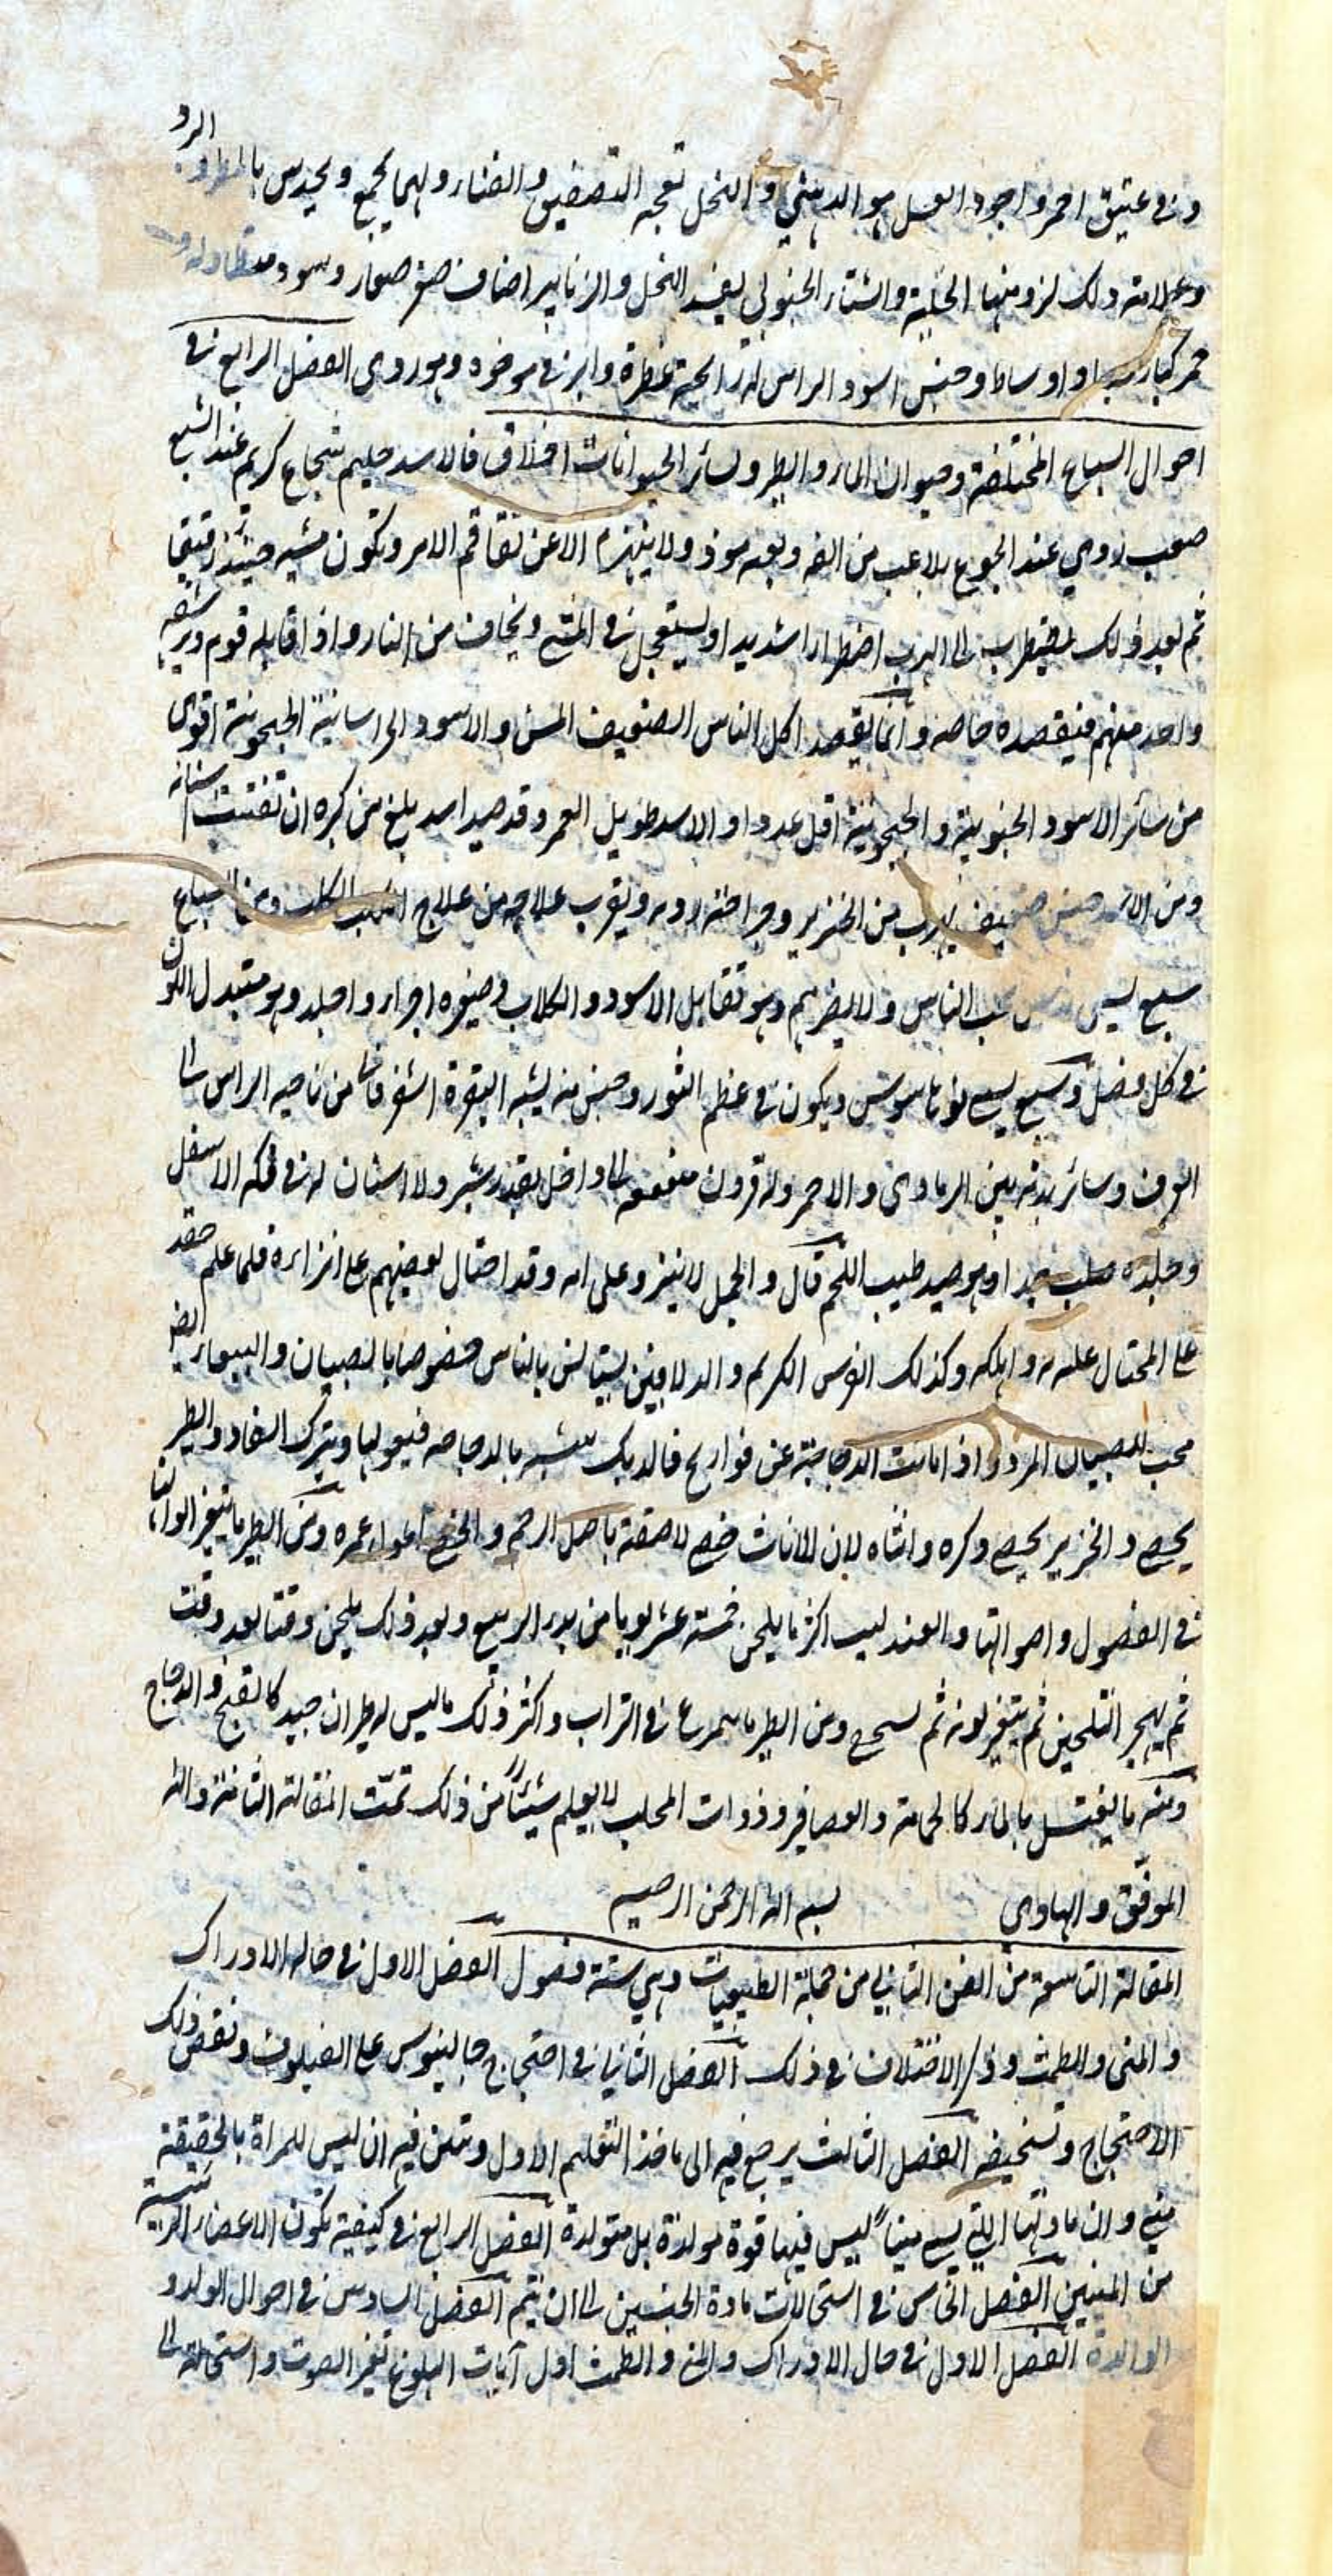 وفي عتيق احمر واجود العسل هو الدهبني والنحل تعجبه التصفيق والغناء ولهما يجمع ويحدس بالمطر والبرد
وعلامته ذلك لزومها الخلية والشتاء الجنوبي يفسد النحل والزنابير اصناف صنف صغار وسود متطاولة و
حمر كبار واوساط وجنس اسود الراس له رائحة عطرة وابرته في موخره وهو ردي الفصل الرابع في
احوال السباع المختلفة وحيوان الماء والطير ولسائر الحيوانات اخلاق فالاسد حليم شجاع كريم عند الشبع
صعب ردي عند الجوع يلاعب من الفه وبعد موذ ولا ينهزم الا عن تفاقم الامر وتكون مشيه حينئذ رقيقا
ثم بعد ذلك يضطرب الى الهرب اضطرارا شديدا ويستعجل في المشي ويخاف من النار واذا قابله قوم ويرشقه
واحد منهم فيقصده خاصه وانما يقصد اكل الناس الضعيف المسن والاسود الخراسانية الجيحونية اقوى
من سائر الاسود الجنوبية والجيحونية اقل عددا والاسد طويل العمر وقد صيد اسد بلغ من كبره ان تفتتت اسنانه
ومن الاسد جنس ضعيف يهرب من الخنزير وجراحته ردية ويقرب علاجه من علاج الكلب الكلب ومن السباع
سبع يسمى يحب الناس ولا يضرهم وهو تقابل الاسود والكلاب وصغيره اجرا واجلد وهو متبدل اللون
في كل فصل وسبع يسمى لوناسوس ويكون في عظم الثور وجنس منه يشبه البقرة اشقر من ناصيه الراس الى
العرف وسائر بدنه بين الرمادي والاحمر وله قرون منعقفه الى داخل بقدر شبر ولا اسنان له في فكه الاسفل
وجلده صلب جدا وهو صيد طيب اللحم قال والجمل لا ينزو على امه وقد احتال بعضهم على انزائه فلما علم حقد
على المحتال عليه وأهلكه وكذلك الفرس الكريم والدلافين يستانس بالناس خصوصا بالصبيان والبيعار ايضا
محب للصبيان المرد واذا ماتت الدجاجة عن فواريج فالديك يتشبه بالدجاجه فيعولها ويترك السفاد والطير
يخصى والخنزير يخصى ذكره وانثاه لان للاناث خصى لاصقة باصل الرحم والخصي اطول عمره ومن الطير ما يتغير الوانها
في الفصول واصواتها والعندليب اكثر ما يلحن خمسة عشر يوما من بدو الربيع وبعد ذلك يلحن وقتا بعد وقت
ثم يهجر التلحين ثم يتغير لونه ثم يسمج ومن الطير ما يتمرغ في التراب واكثر ذلك ما ليس له طيران جيد كالقبج والدجاج
ومنه ما يغتسل بالماء كالحمامة والعصافير وذوات المخلب لا يعلم شيئا من ذلك تمّت المقالة الثامنة والله
الموفق والهادي بسم الله الرحمن الرحيم
المقالة التاسعة من الفن الثاني من جملة الطبيعيات وهي ستة فصول الفصل الاول في حاله الادراك
والمنى والطمث وذكر الاختلاف في ذلك الفصل الثاني في احتجاج جالينوس على الفيلسوف ونقض ذلك
الاحتجاج وتسخيفه الفصل الثالث يرجع فيه الى ماخذ التعليم الاول وتبين فيه ان ليس للمراة بالحقيقة
مني وان مادتها التي يسمى منيا ليس فيها قوة مولدة بل متولدة الفصل الرابع في كيفية تكون الاعضاء الرئيسية
من المنيين الفصل الخامس في استحالات مادة الجنسين الى ان يتم الفصل السادس في احوال الولد و
الوالدة الفصل الاول في حال الادراك والمنى والطمث اول آيات البلوغ تغير الصوت واستحالته الى